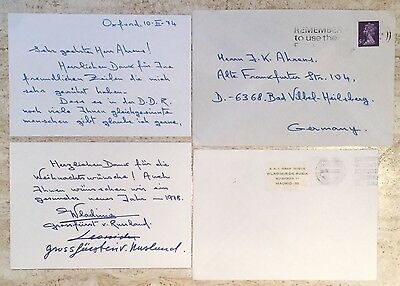 Oxford, 10-II-74
Sehr geehrte Herr Ahrens!
Herzlichen Dank für Ihre
freundlichen Zeilen die mich
sehr gerührt haben.
Dass es in der D.D.R.
noch viele Ihnen gleichgesinnte
menschen gibt glaube ich gerne.
REMEMBER
to use the
Herrn J-K. Ahrens.
Alte Frankfurter Str. 104,
D.-6368, Bad Vilbel-Heilsberg.
Germany.
Herzlichen Dank für die
Weihnachtswünsche! Auch
Ihnen wünschen wir ein
gesundes neues Jahr - 1978.
Wladimir
Grossfürst v. Russland.
Leonida
Grossfürstin v. Russland.
WLADIMIR DE RUSIA
MADRID